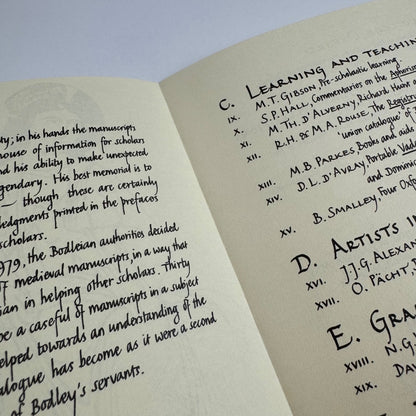 ty; in his hands the manuscripts
house of information for scholars
nd his ability to make unexpected
gendary. His best memorial is to
— though these are certainly
ledgments printed in the prefaces
scholars.
979, the Bodleian authorities decided
of medieval manuscripts, in a way that
ian in helping other scholars. Thirty
be a caseful of manuscripts in a subject
elped towards an understanding of the
alogue has become as it were a second
of Bodley's servants.
C. LEARNING AND TEACHIN
IX. M.T. GIBSON, Pre-scholastic learning.
X. S.P. HALL, Commentaries on the Aphorism
XI. M. TH. D'ALVERNY, Richard Hunt a
XII. R.H. & M.A. ROUSE, The Registr
'union catalogue' of
XIII. M.B. PARKES Books and aid
XIV. D.L. D'AVRAY Portable Vade
and Domini
XV. B. SMALLEY, Four Oxfor
D. ARTISTS I
XVI. J.J.G. ALEXA
XVII. O. PÄCHT,
E. GRA
XVIII. N.G.
XIX. DAV